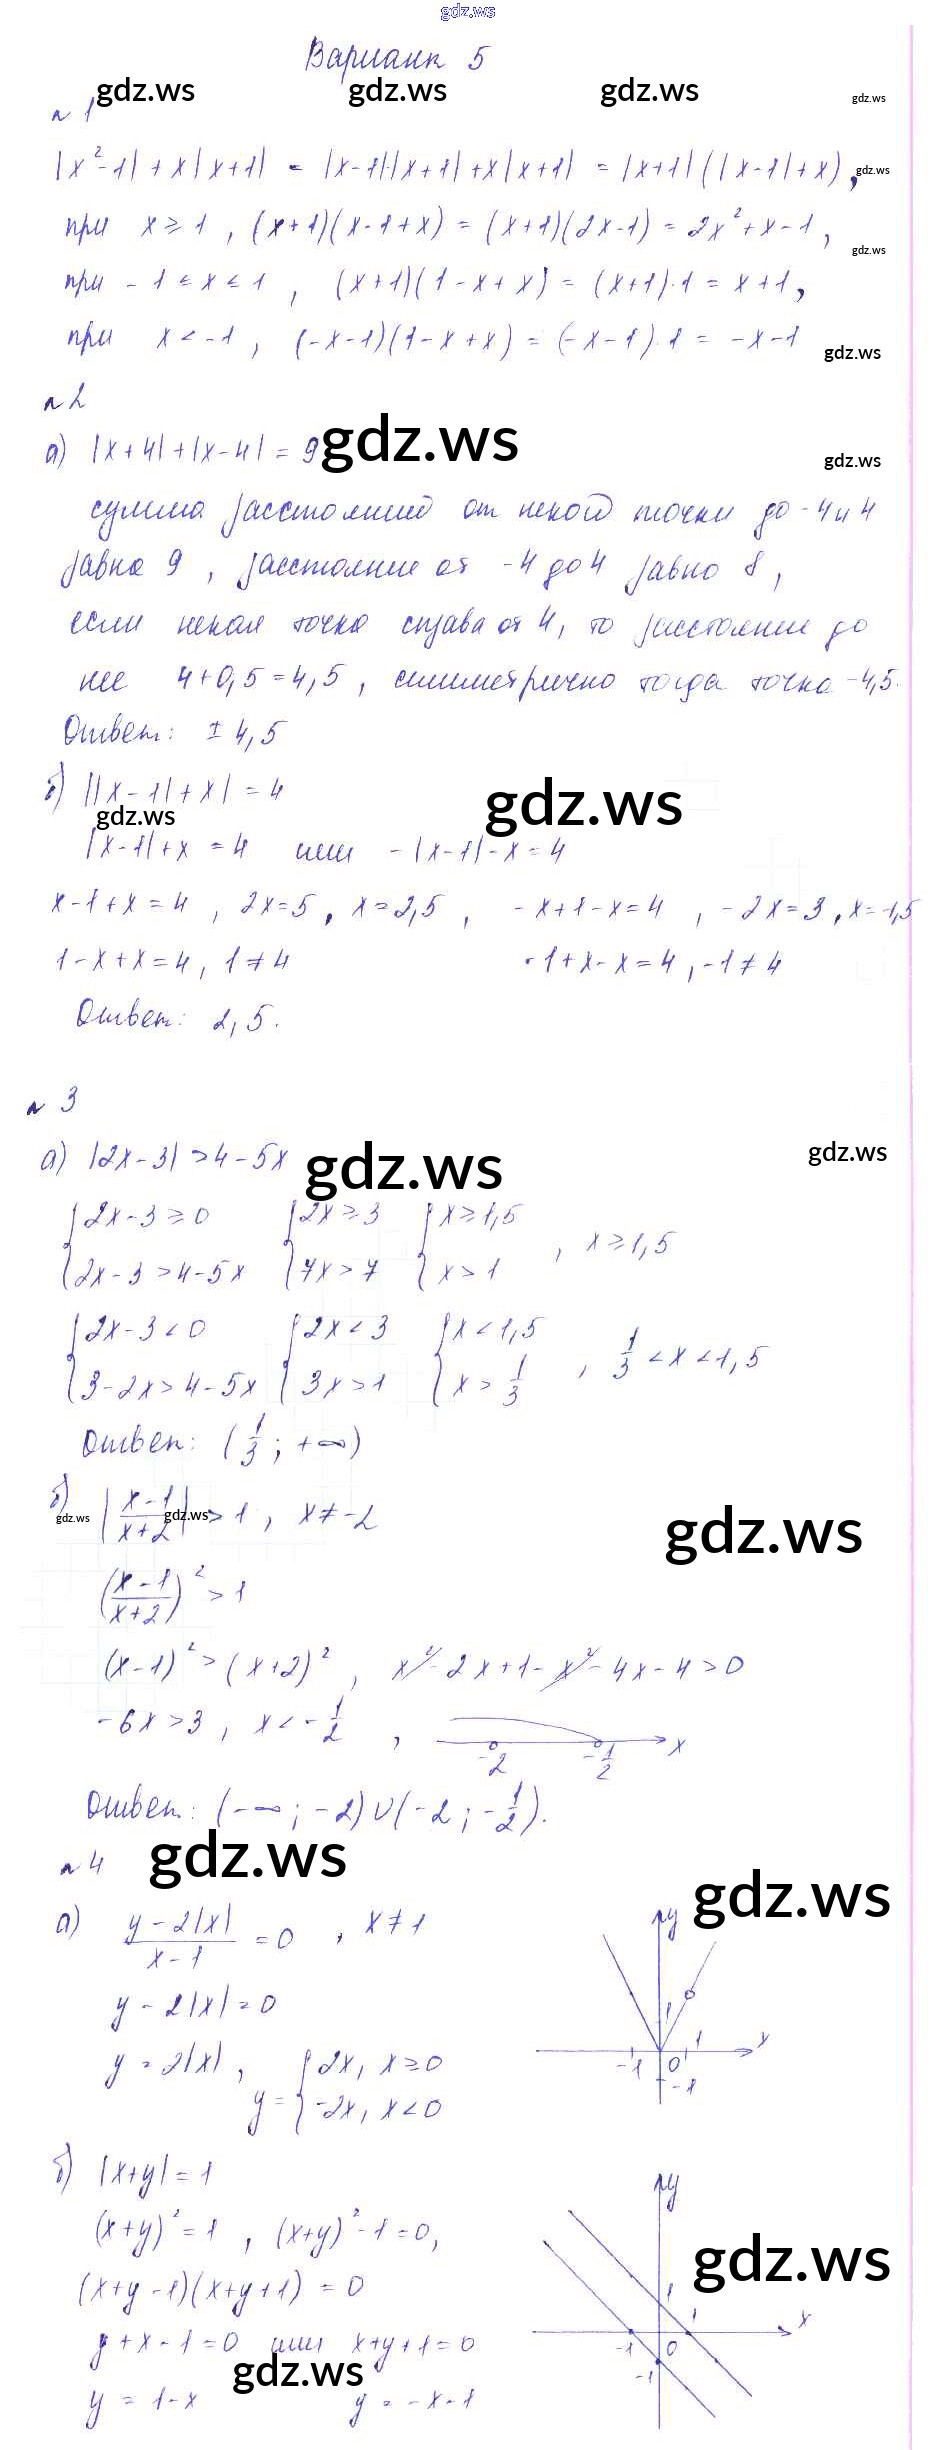 gdz.ws
Вариант 5
gdz.ws gdz.ws gdz.ws gdz.ws
№ 1
|x²-1| + x|x+1| = |x-1|·|x+1| + x|x+1| = |x+1|(|x-1|+x), gdz.ws
при x ≥ 1, (x+1)(x-1+x) = (x+1)(2x-1) = 2x²+x-1,
gdz.ws
при -1 ≤ x ≤ 1, (x+1)(1-x+x) = (x+1)·1 = x+1,
при x < -1, (-x-1)(1-x+x) = (-x-1)·1 = -x-1
gdz.ws
№ 2
а) |x+4|+|x-4| = 9 gdz.ws
gdz.ws
сумма расстояний от некой точки до -4 и 4
равна 9, расстояние от -4 до 4 равно 8,
если некая точка справа от 4, то расстояние до
нее 4+0,5=4,5, симметрично тогда точка -4,5.
Ответ: ±4,5
б) ||x-1|+x| = 4
gdz.ws gdz.ws
|x-1|+x = 4 или -|x-1|-x=4
x-1+x=4, 2x=5, x=2,5, -x+1-x=4, -2x=3, x=-1,5
1-x+x=4, 1≠4 -1+x-x=4, -1≠4
Ответ: 2,5.
№ 3
а) |2x-3| > 4-5x gdz.ws gdz.ws
{2x-3 ≥ 0 {2x ≥ 3 {x ≥ 1,5
, x ≥ 1,5
2x-3 > 4-5x 7x > 7 x > 1
{2x-3 < 0 {2x < 3 {x < 1,5
, 1/3 < x < 1,5
3-2x > 4-5x 3x > 1 x > 1/3
Ответ: (1/3; +∞)
б) |(x-1)/(x+2)| > 1, x ≠ -2
gdz.ws gdz.ws gdz.ws
((x-1)/(x+2))² > 1
(x-1)² > (x+2)², x²-2x+1-x²-4x-4 > 0
-6x > 3, x < -1/2,
x
-2 -1/2
Ответ: (-∞; -2)∪(-2; -1/2).
№ 4 gdz.ws
gdz.ws
а) (y-2|x|)/(x-1) = 0, x ≠ 1
y
y-2|x| = 0
1
y = 2|x|, y = {2x, x ≥ 0
-2x, x < 0
-1 0 1 x
-1
б) |x+y| = 1
y
(x+y)² = 1, (x+y)²-1=0,
gdz.ws
(x+y-1)(x+y+1) = 0
1
y+x-1=0 или x+y+1=0
-1 0 1 x
-1
gdz.ws
y = 1-x y = -x-1